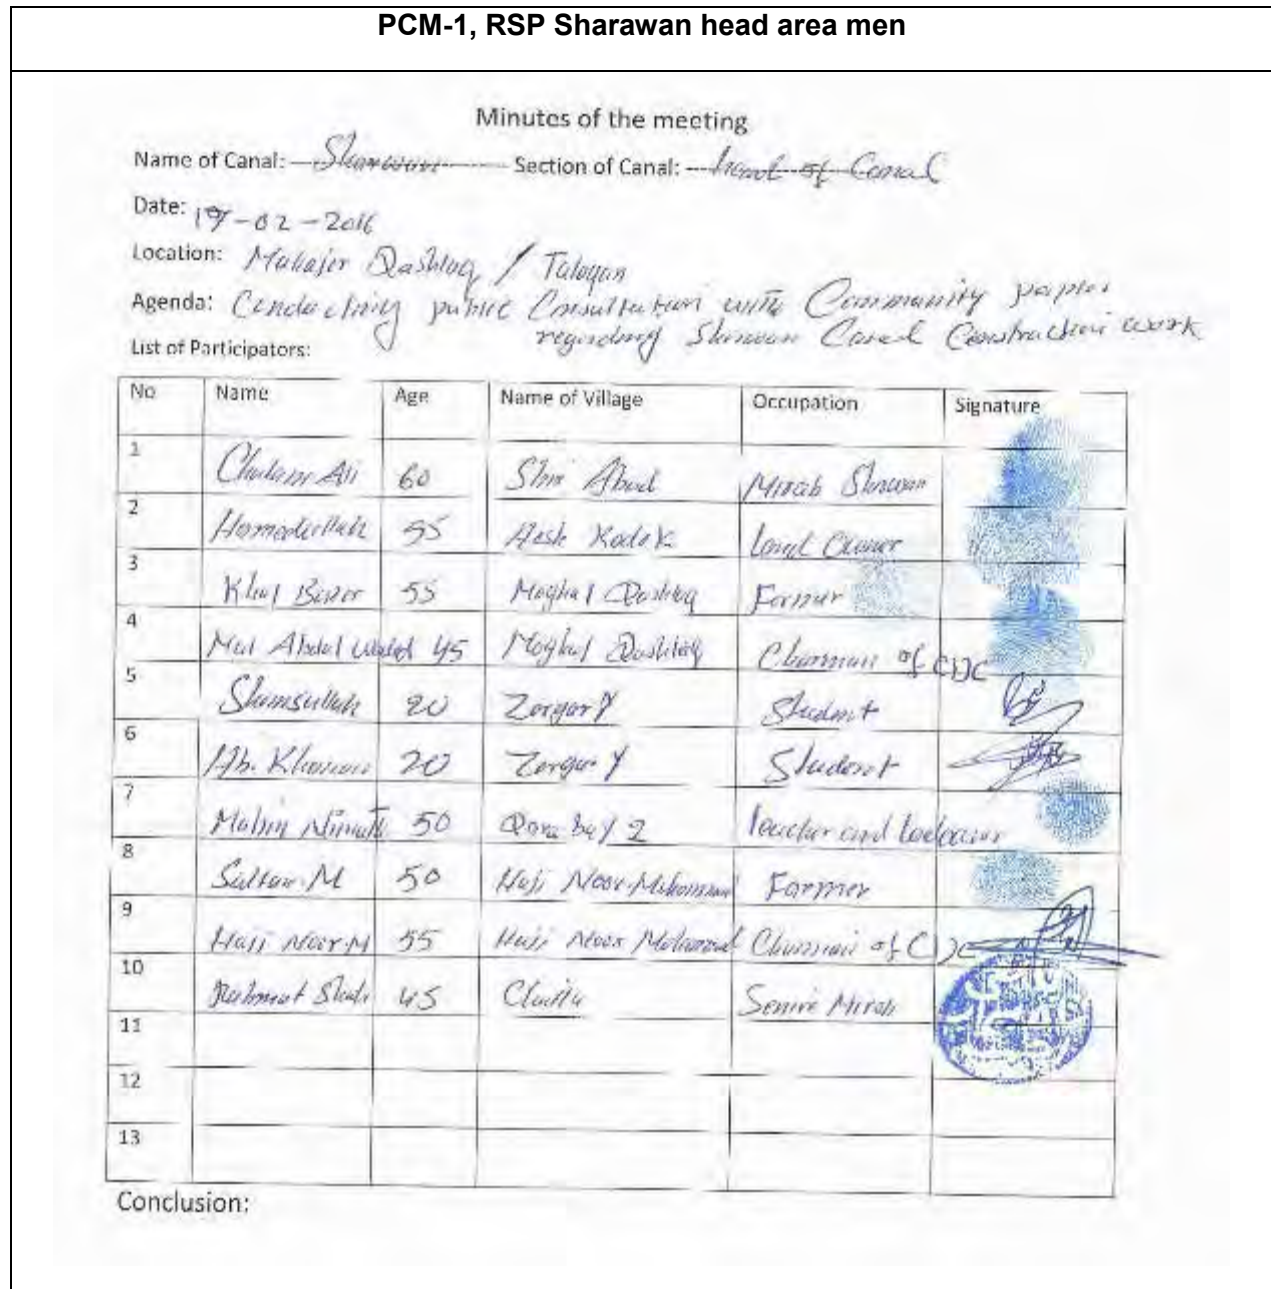 PCM-1, RSP Sharawan head area men
Minutes of the meeting
Name of Canal: Sharawan Section of Canal: head of Canal
Date: 17-02-2016
Location: Mahajer Qashlaq / Taloqan
Agenda: Conducting public Consultation with Community peoples
regarding Sharwan Canal Construction work
List of Participators:
No Name Age Name of Village Occupation Signature
1 Ghulam Ali 60 Shir Abad Mirab Sharwan
2 55 Land Owner
3 55 Moghul Qashlaq Farmer
4 Abdul Wahid 45 Moghul Qashlaq Chairman of CDC
5 Shamsullah 20 Zargary Student
6 Ab. 20 Zargary Student
7 50 Qara bay 2 teacher and
8 Sultan M 50 Haji Noor Mohammad Farmer
9 Haji Noor M 55 Haji Noor Mohammad Chairman of CDC
10 Rahmat Shah 45 Mirab
11
12
13
Conclusion: